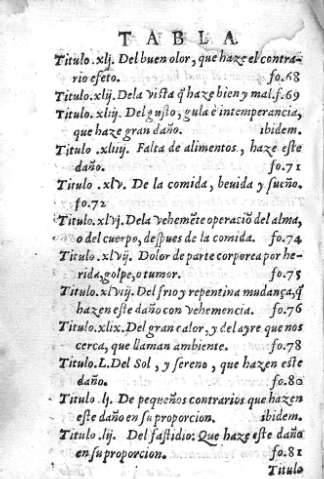 TABLA.
Titulo .xlj. Del buen olor, que haze el contra-
rio efeto. fo.68
Titulo .xlij. Dela vista q̃ haze bien y mal. f.69
Titulo .xliij. Del gusto, gula è intemperancia,
que haze gran daño. ibidem.
Titulo .xliiij. Falta de alimentos, haze este
daño. fo.71
Titulo .xlv. De la comida, beuida y sueño.
fo.72
Titulo.xlvj. Dela vehemẽte operaciõ del alma,
o del cuerpo, despues de la comida. fo.74
Titulo .xlvij. Dolor de parte corporea por he-
rida, golpe, o tumor. fo.75
Titulo.xlviij. Del frio y repentina mudança, q̃
hazen este daño con vehemencia. fo.76
Titulo.xlix. Del gran calor, y del ayre que nos
cerca, que llaman ambiente. fo.78
Titulo.L. Del Sol, y sereno, que hazen este
daño. fo.80
Titulo .lj. De pequeños contrarios que hazen
este daño en su proporcion. ibidem.
Titulo .lij. Del fastidio: Que haze este daño
en su proporcion. fo.81
Titulo